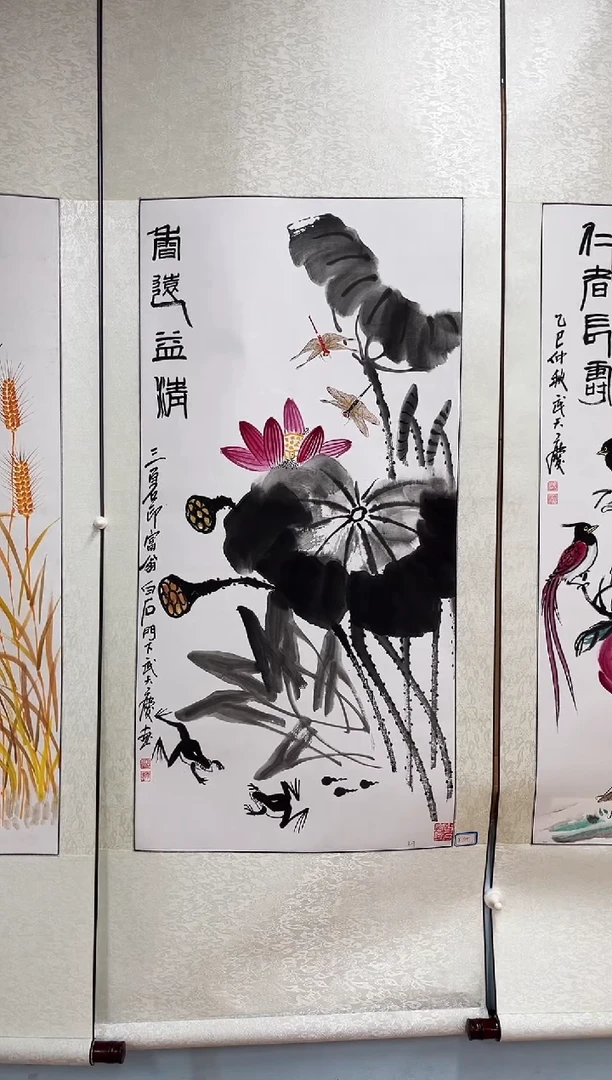 香遠益清
三百石印富翁白石門下武大慶畫
仁者長壽
乙巳仲秋武大慶